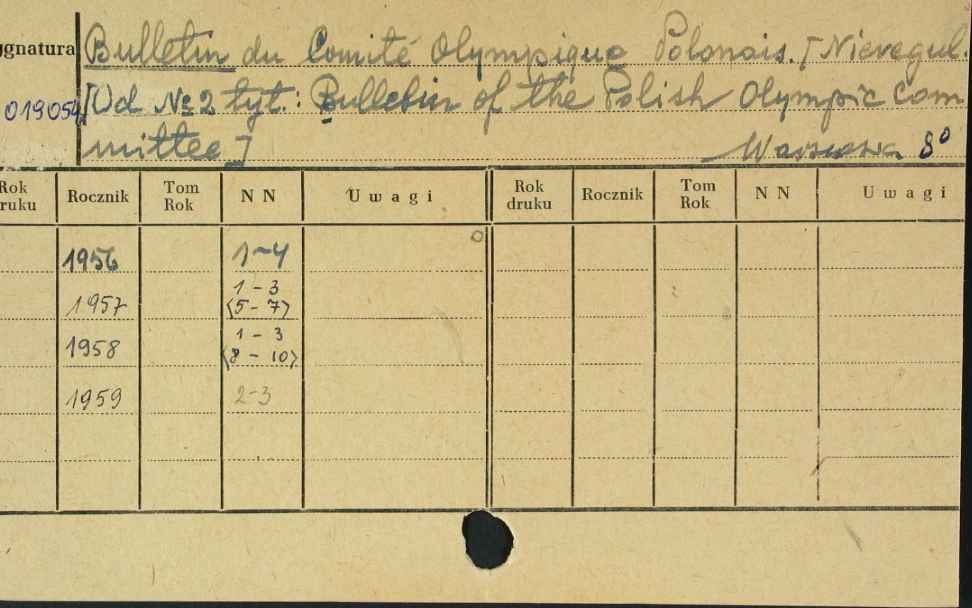 ygnatura Bulletin du Comité Olympique Polonais. [Nieregul.
019054 [Od № 2 tyt.: Bulletin of the Polish Olympic Com
mittee] Warszawa 8°
Rok druku Rocznik Tom Rok NN Uwagi Rok druku Rocznik Tom Rok NN Uwagi
1956 1-4
1957 1-3 (5-7)
1958 1-3 (8-10)
1959 2-3